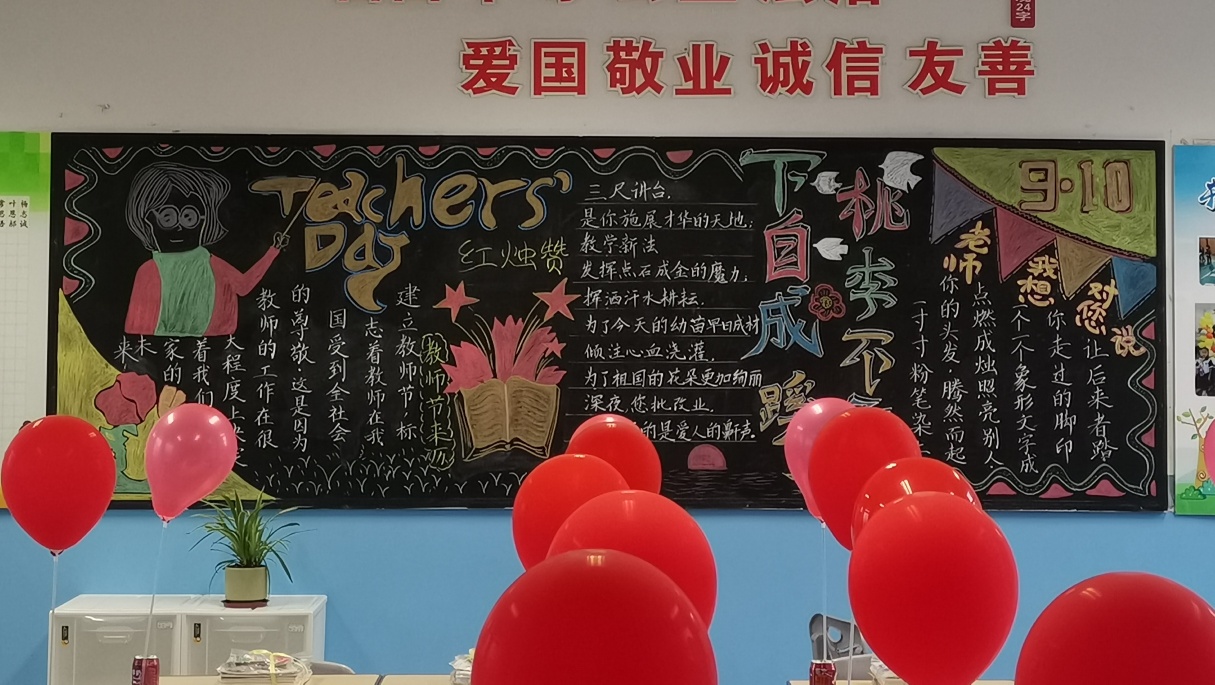 24
字
爱国 敬业 诚信 友善
杨志诚
叶思郝
Teachers'
Day
红烛赞
9·10
三尺讲台,
是你施展才华的天地;
教学新法
发挥点石成金的魔力;
挥洒汗水耕耘,
为了今天的幼苗早日成材
倾注心血浇灌,
为了祖国的花朵更加绚丽
深夜,您批改业,
的是爱人的鼾声。
桃李不
下自成蹊
老师我想对您说
一寸寸粉笔染
你的头发·腾然而起
点燃成烛照亮别人
一个个象形文字成
你走过的脚印
让后来者踏
教师节来历
建立教师节标
志着教师在我
国受到全社会
的尊敬·这是因为
教师的工作在很
大程度上
着我们
家的
未
来